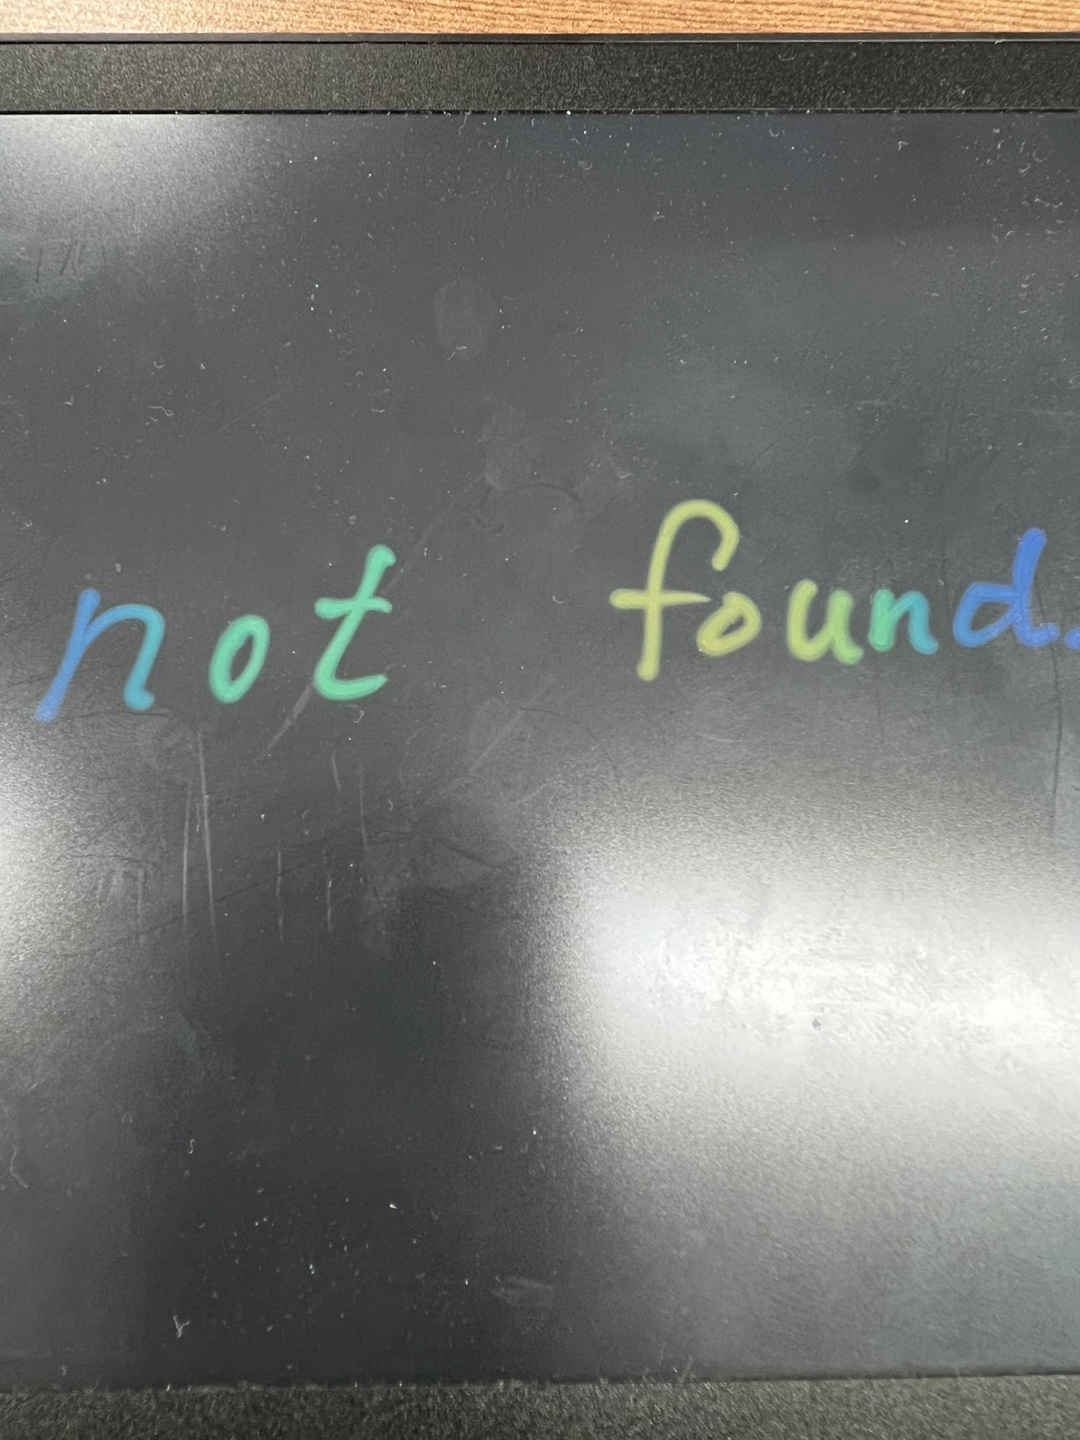 not found.